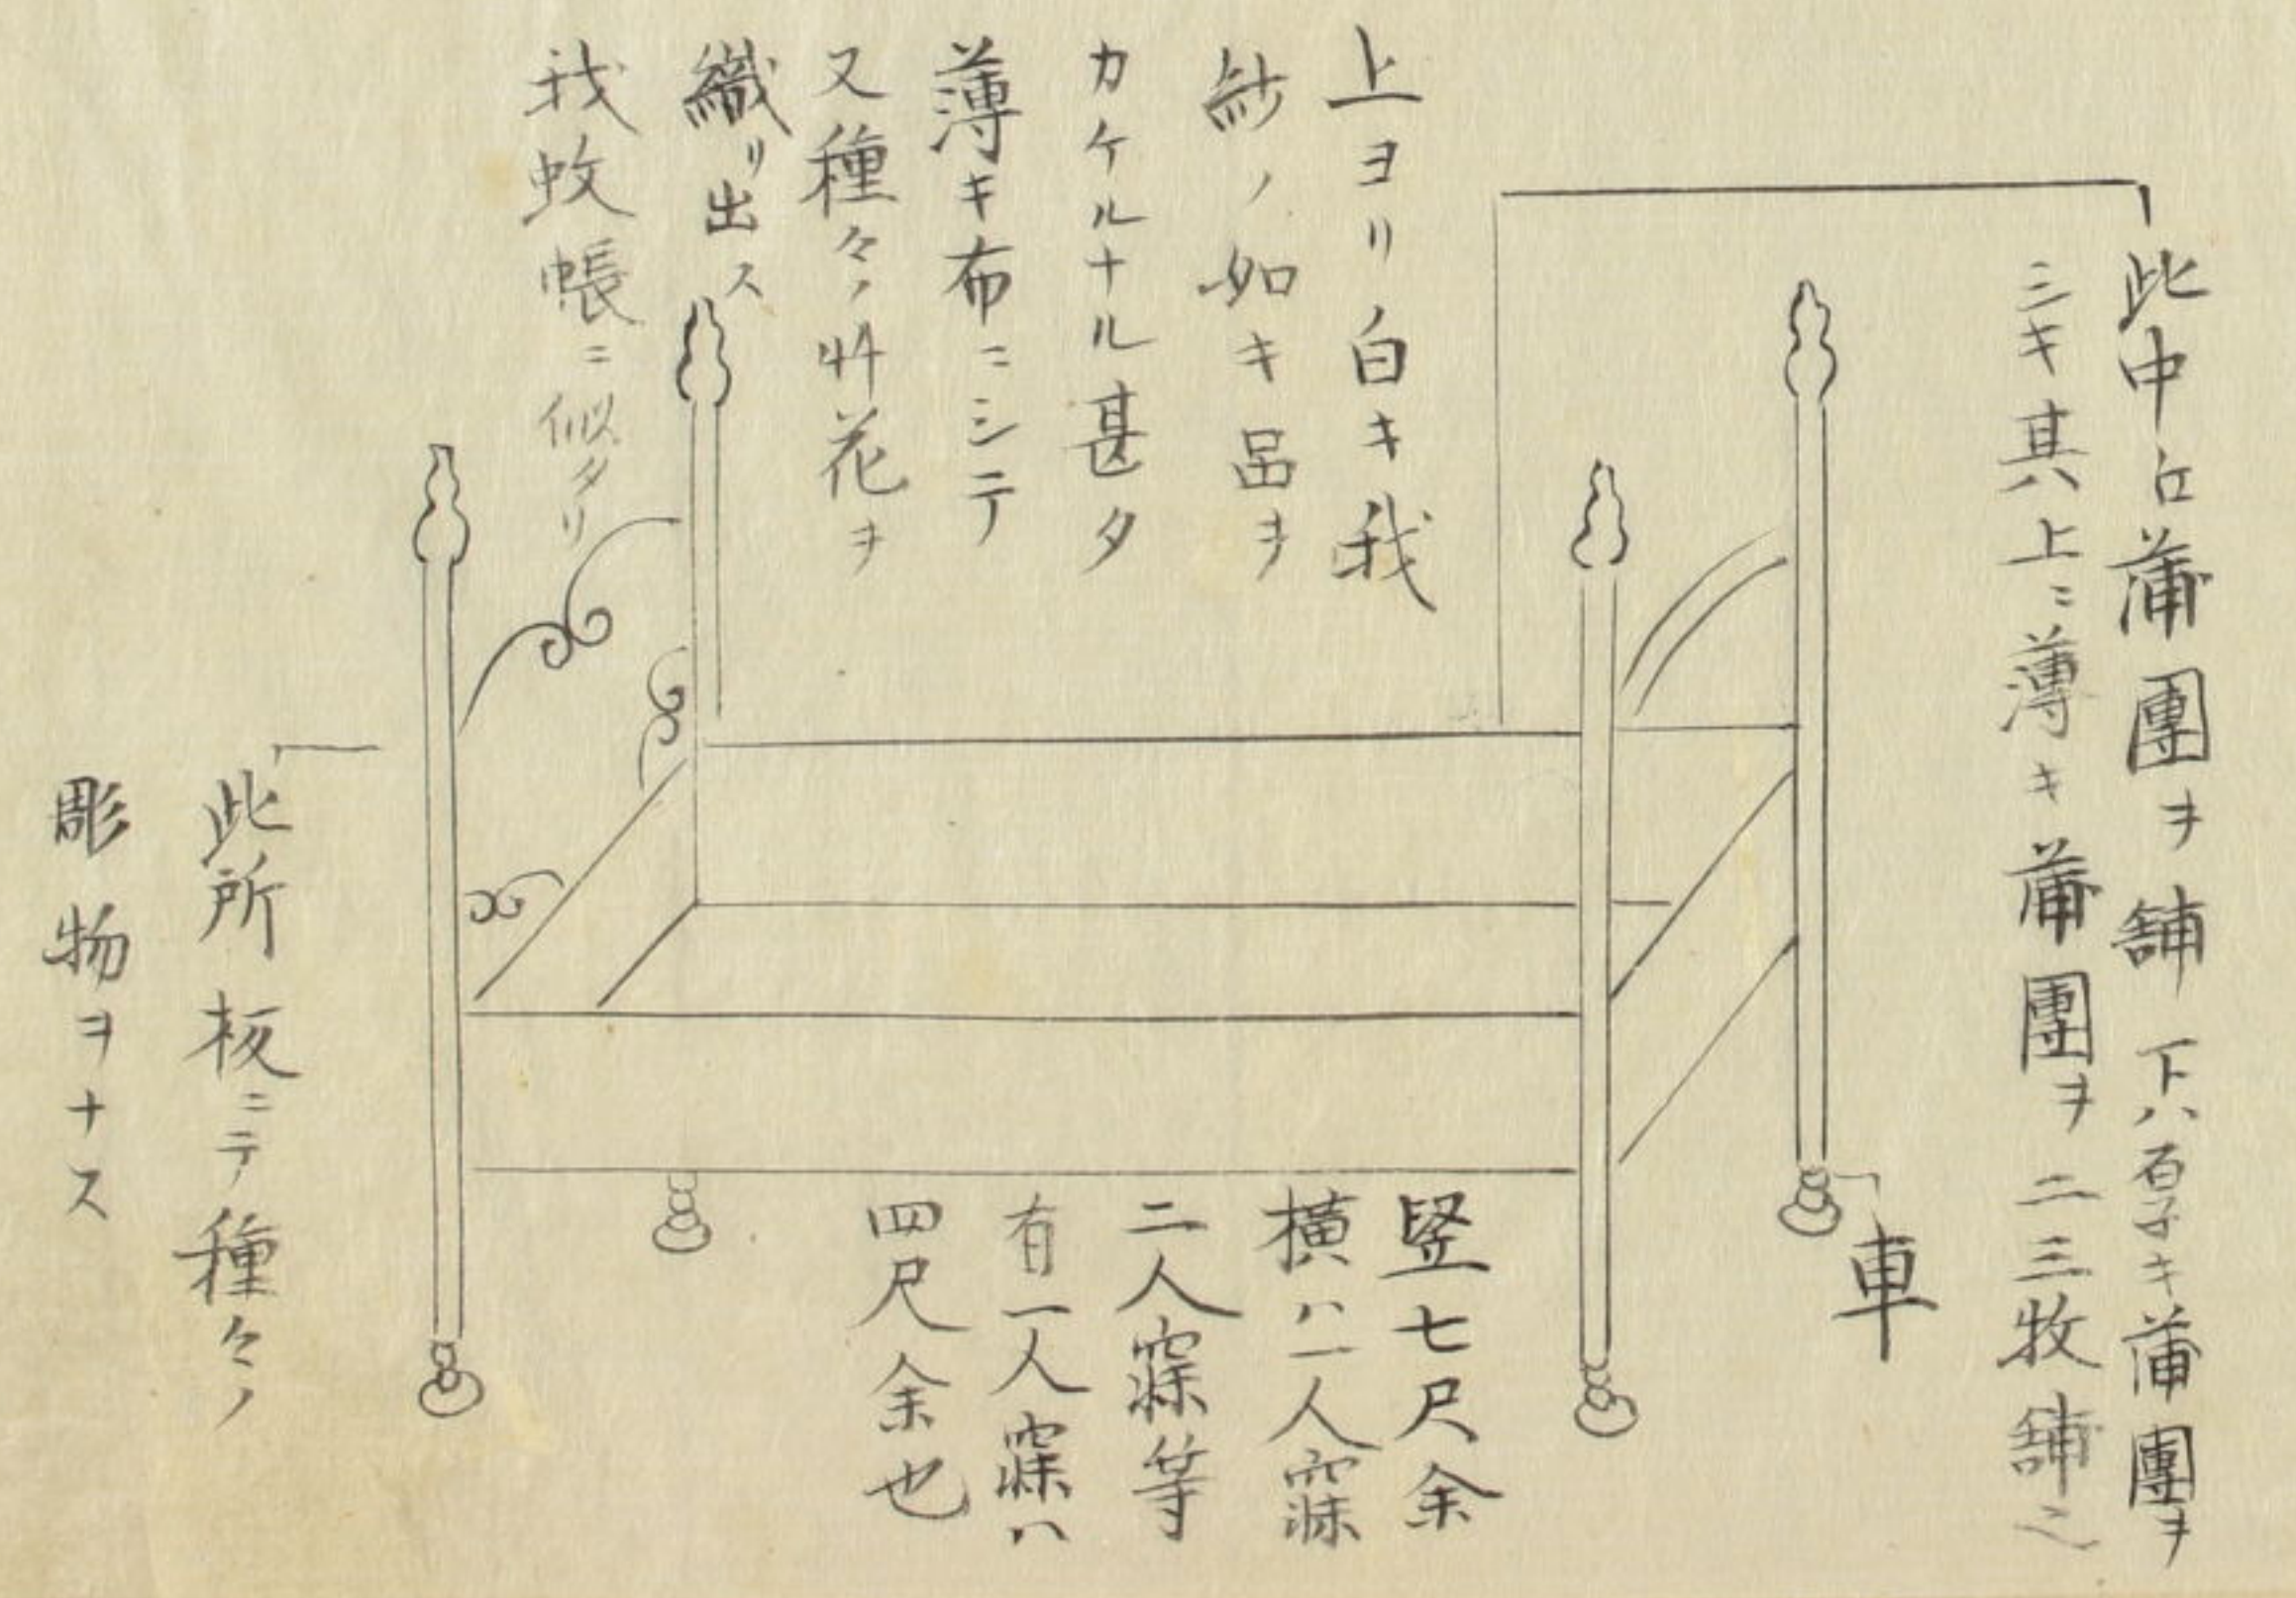 此中ニ蒲團ヲ舗下ハ厚キ蒲團ヲ
シキ其上ニ薄キ蒲團ヲ二三牧舗之
上ヨリ白キ我
紗ノ如キ品ヲ
カケルナル甚タ
薄キ布ニシテ
又種々ノ艸花ヲ
織リ出ス
我蚊帳ニ似タリ
車
竪七尺余
横ハ一人寐
二人寐等
有一人寐ハ
四尺余也
此所板ニテ種々ノ
彫物ヲナス